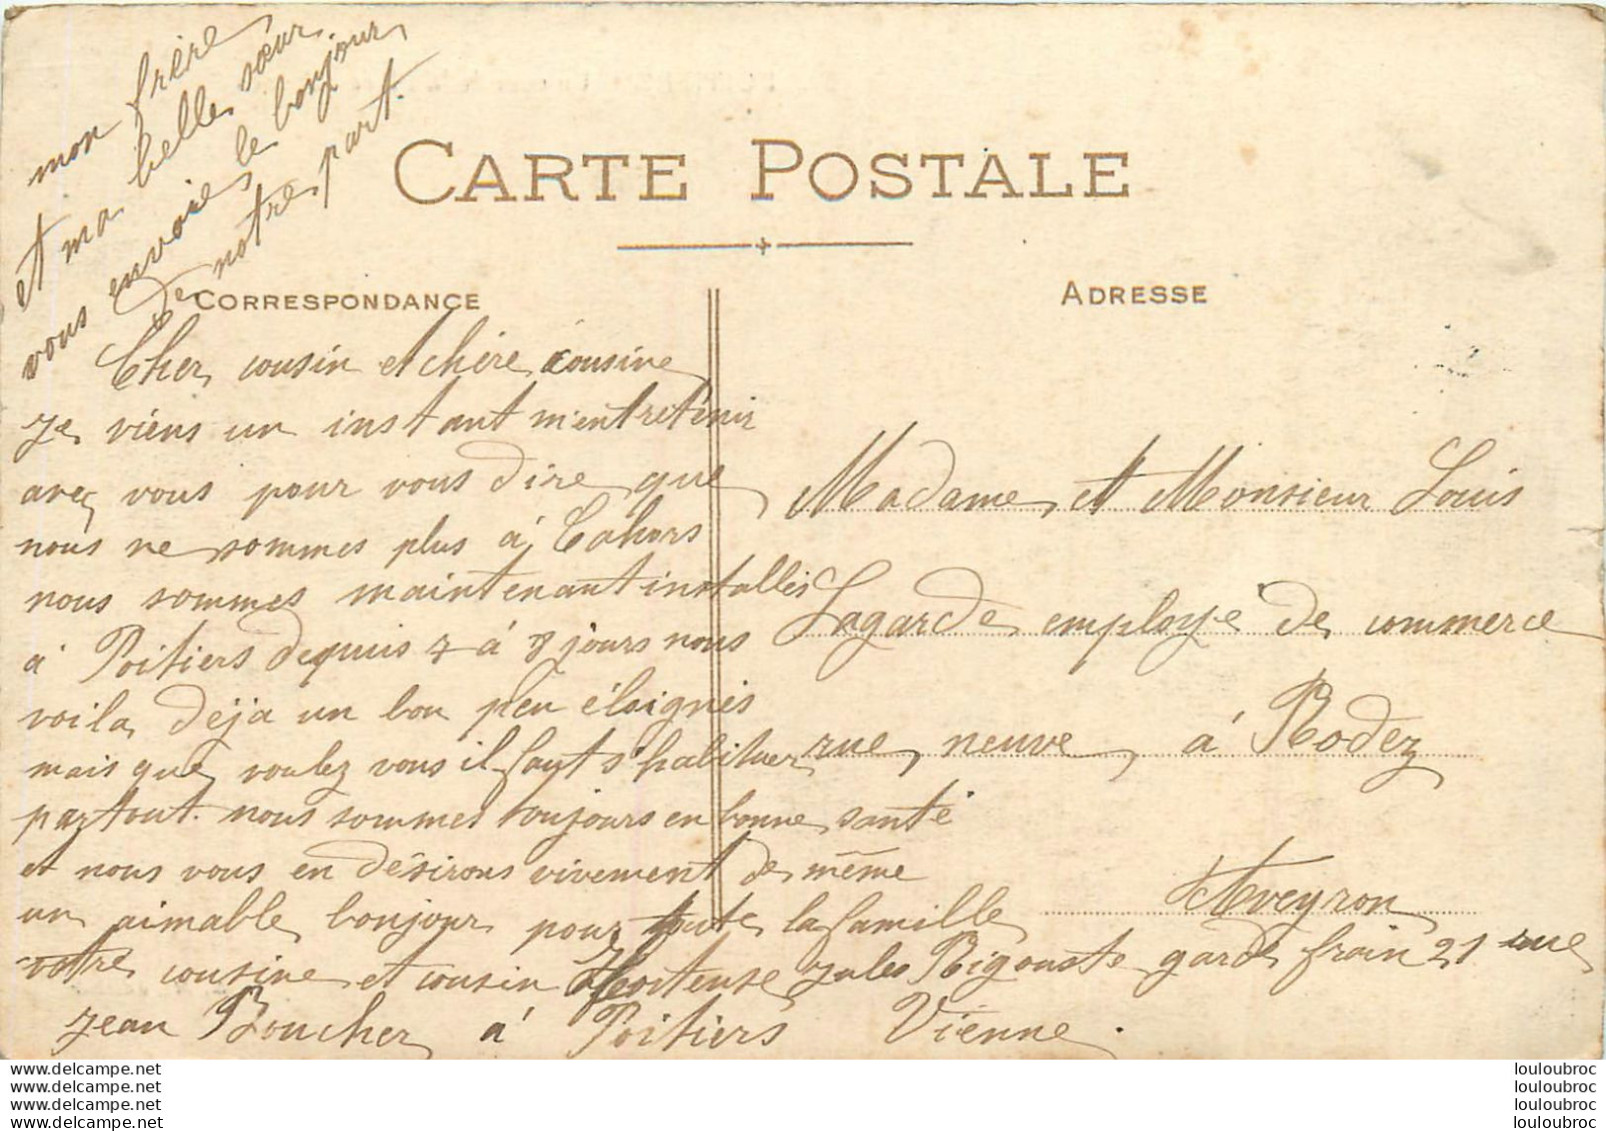 mon frère
et ma belle sœur
vous envoie le bonjour
de notre part.
CARTE POSTALE
CORRESPONDANCE
ADRESSE
Cher cousin et chère cousine
Je viens un instant m'entretenir
avec vous pour vous dire que
nous ne sommes plus à Cahors
nous sommes maintenant installés
à Poitiers depuis 7 à 8 jours nous
voila déja un bon peu éloignés
mais que voulez vous il faut s'habituer
partout. nous sommes toujours en bonne santé
et nous vous en désirons vivement de même
un aimable bonjour pour toute la famille
votre cousine et cousin Hortense Jules Rigouste garde frein 21 rue
Jean Boucher à Poitiers Vienne.
Madame et Monsieur Louis
Lagarde employé de commerce
rue neuve, à Rodez
Aveyron
www.delcampe.net
www.delcampe.net
www.delcampe.net
www.delcampe.net
louloubroc
louloubroc
louloubroc
louloubroc